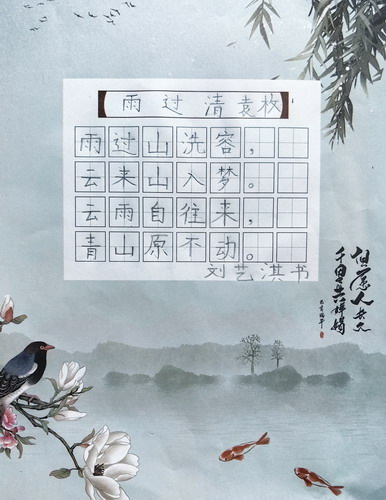 雨过清袁枚
雨过山洗容，
云来山入梦。
云雨自往来，
青山原不动。
刘艺淇书
但愿人长久
千里共婵娟